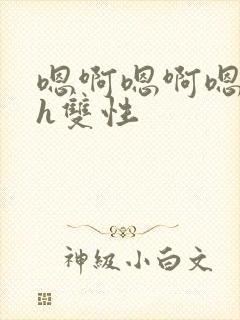 嗯啊嗯啊嗯
h雙性
神級小白文